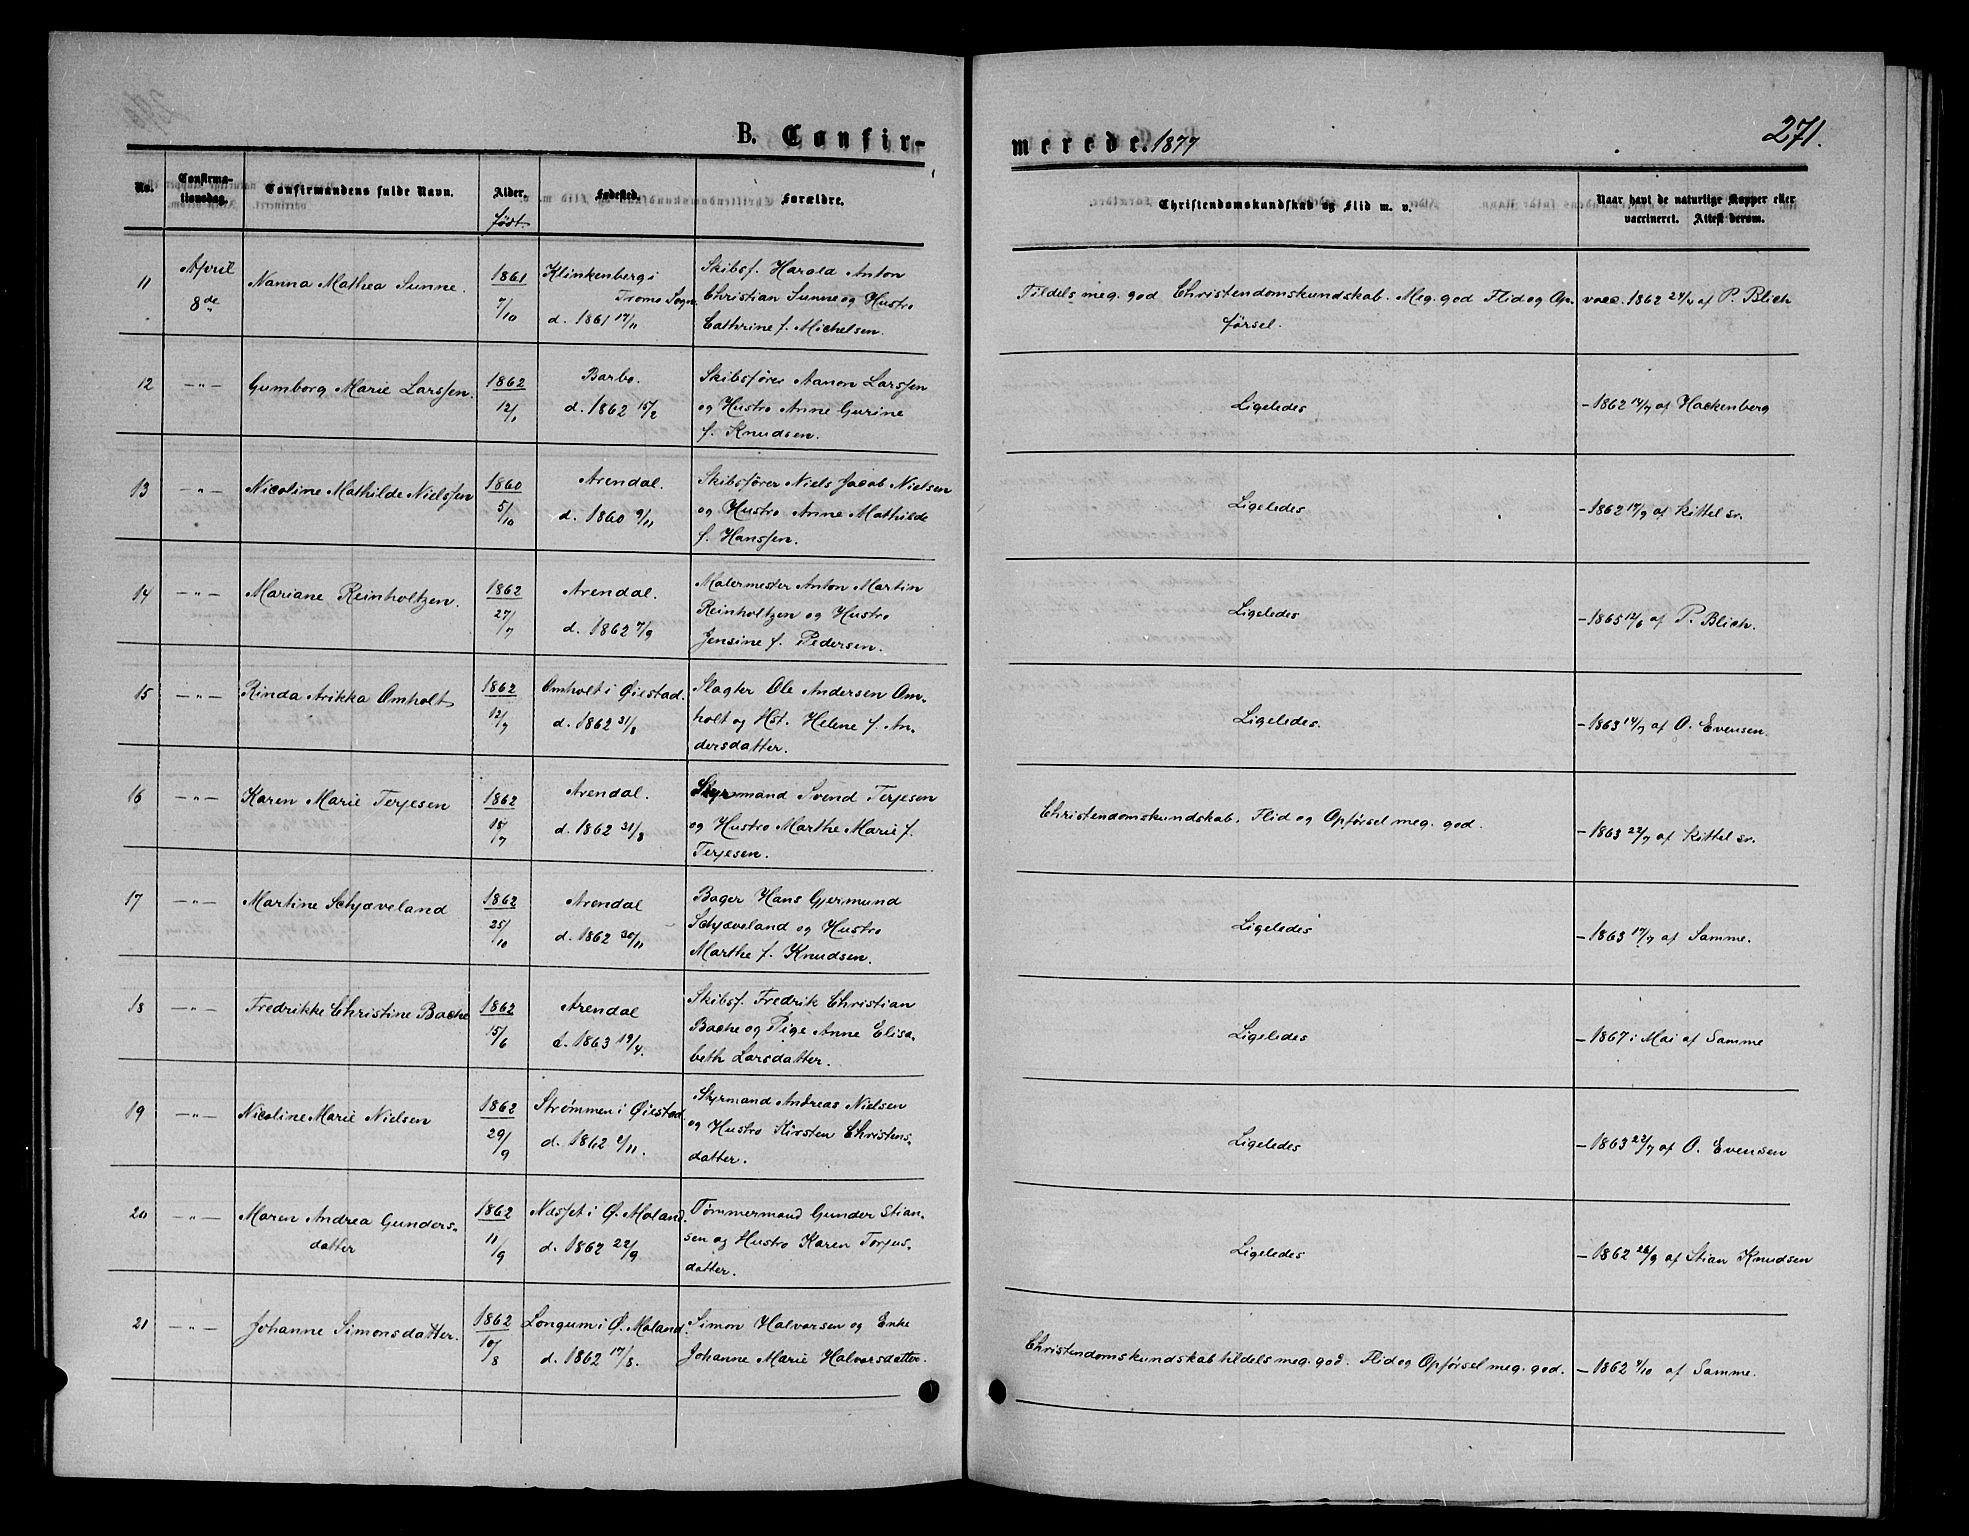 B. Confir-
merede. 1877
271.
No.
Confirma-
tionsdag.
Confirmandens fulde Navn.
Alder.
født
Fødested.
Forældre.
Christendomskundskab og Flid m. v.
Naar havt de naturlige Kopper eller
vaccineret. Attest derom.
11
April
8de
Nanna Mathea Sunne.
1861
7/10
Klinkenberg i
Tromø Sogn
d. 1861 17/11
Skibsf. Harald Anton
Christian Sunne og Hustro
Cathrine f. Michelsen.
Tildels meg. god Christendomskundskab. Meg. god Flid og Op-
førsel.
vacc. 1862 24/4 af P. Blich
12 -"- Gumborg Marie Larssen.
1862
12/1
Barbo.
d. 1862 15/2
Skibsfører Aanon Larssen
og Hustro Anne Gurine
f. Knudsen.
Ligeledes
- 1862 14/7 af Hackenberg
13 -"- Nicoline Mathilde Nielssen
1860
5/10
Arendal.
d. 1860 9/11
Skibsfører Niels Jacob Nielsen
og Hustro Anne Mathilde
f. Hanssen.
Ligeledes
- 1862 17/9 af Kittel sr.
14 -"- Mariane Reinholtzen.
1862
27/7
Arendal.
d. 1862 7/9
Malermester Anton Martin
Reinholtzen og Hustro
Jensine f. Pedersen.
Ligeledes
- 1865 12/6 af P. Blich.
15 -"- Rinda Arikka Omholt
1862
12/7
Omholt i Øiestad.
d. 1862 31/8
Slagter Ole Andersen Om-
holt og Hst. Helene f. An-
dersdatter.
Ligeledes.
- 1863 14/7 af O. Evensen.
16 -"- Karen Marie Terjesen
1862
15/7
Arendal.
d. 1862 31/8
Styrmand Svend Terjesen
og Hustro Marthe Marie f.
Terjesen.
Christendomskundskab, Flid og Opførsel meg. god.
- 1863 22/7 af Kittel sr.
17 -"- Martine Schjæveland
1862
25/10
Arendal
d. 1862 30/11
Bager Hans Gjermund
Schjæveland og Hustro
Marthe f. Knudsen.
Ligeledes
- 1863 17/7 af Samme.
18 -"- Fredrikke Christine Bache
1862
15/6
Arendal
d. 1863 19/4.
Skibsf. Fredrik Christian
Bache og Pige Anne Elisa-
beth Larsdatter.
Ligeledes
- 1867 i Mai af Samme
19 -"- Nicoline Marie Nielsen
1862
29/9
Strømmen i Øiestad
d. 1862 /11.
Styrmand Andreas Nielsen
og Hustro Kirsten Christens-
datter.
Ligeledes
- 1863 22/7 af O. Evensen
20 -"- Maren Andrea Gunders-
datter
1862
11/9
Næsset i Ø. Moland.
d. 1862 22/9
Tømmermand Gunder Stian-
sen og Hustro Karen Torjus-
datter.
Ligeledes
- 1862 26/9 af Stian Knudsen
21 -"- Johanne Simonsdatter.
1862
10/8
Longum i Ø. Moland.
d. 1862 17/8.
Simon Halvorsen og Enke
Johanne Marie Halvorsdatter.
Christendomskundskab tildels meg. god. Flid og Opførsel meg. god.
- 1862 /10 af Samme.